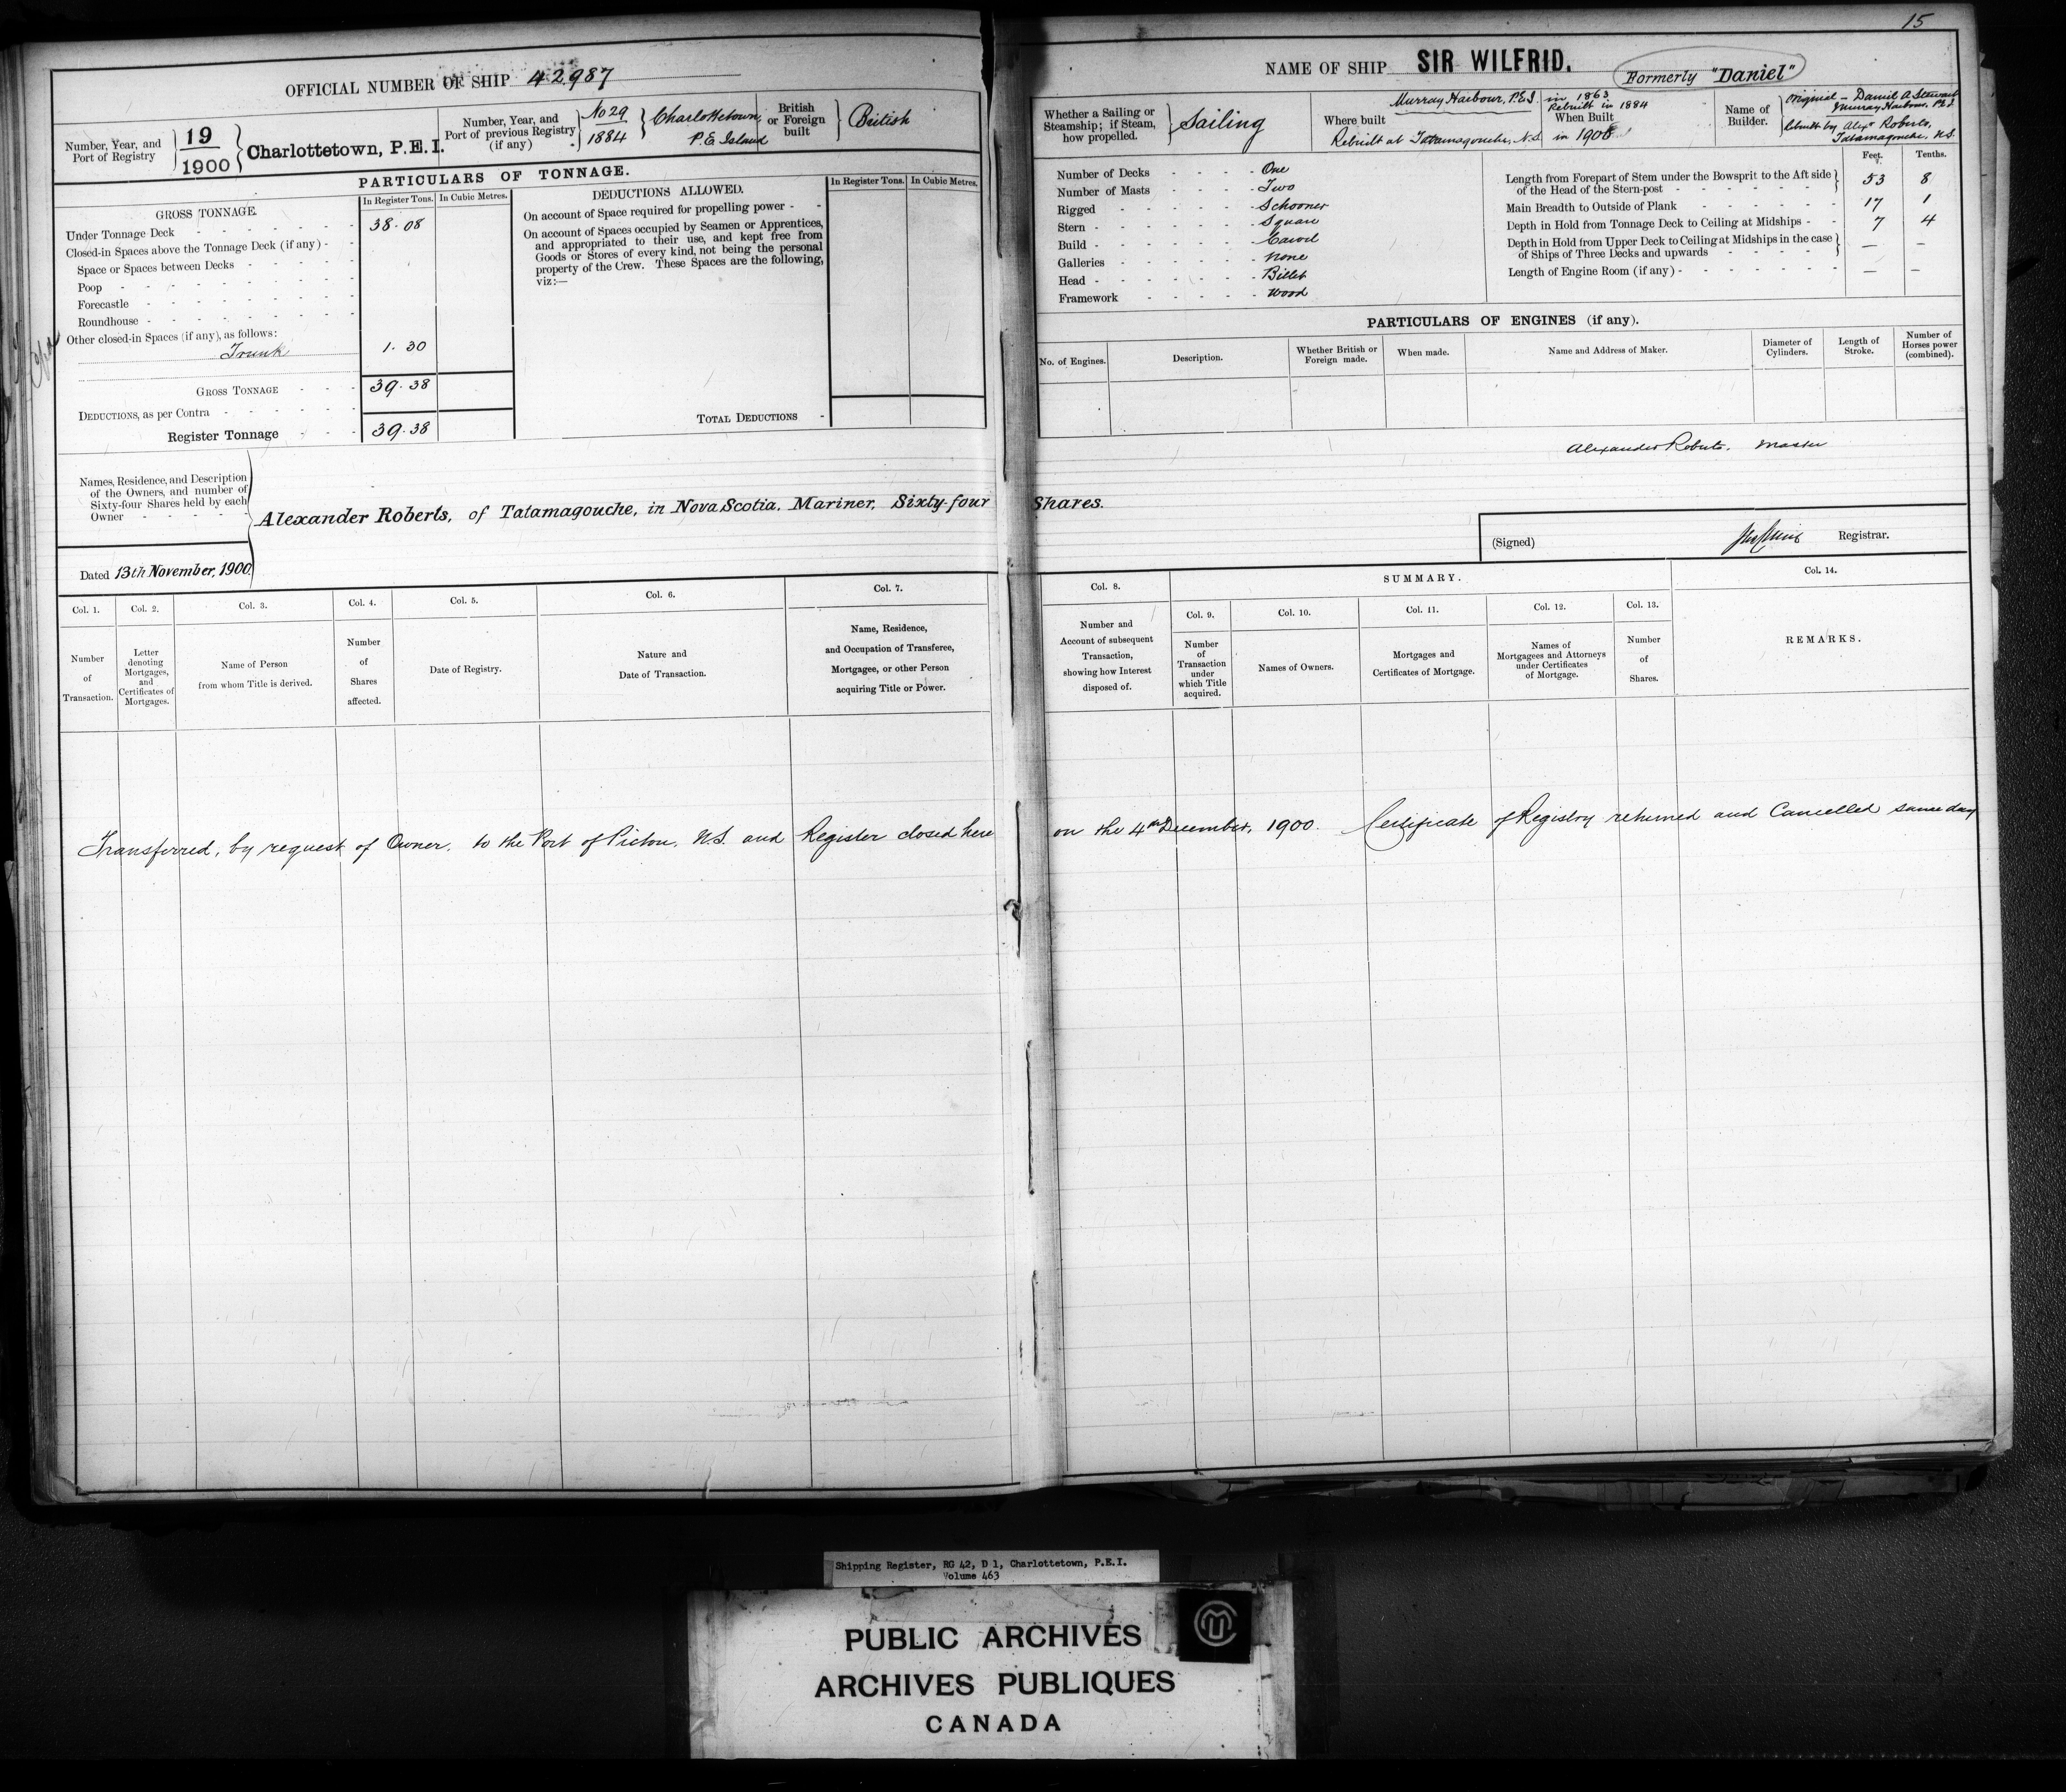 15
OFFICIAL NUMBER OF SHIP 42,987
Number, Year, and Port of Registry
19
1900
Charlottetown, P.E.I.
Number, Year, and Port of previous Registry (if any)
No 29
1884
Charlottetown,
P.E. Island
British or Foreign built
British
PARTICULARS OF TONNAGE.
GROSS TONNAGE.
In Register Tons. In Cubic Metres.
Under Tonnage Deck 38.08
Closed-in Spaces above the Tonnage Deck (if any) -
Space or Spaces between Decks
Poop
Forecastle
Roundhouse
Other closed-in Spaces (if any), as follows:
Trunk 1.30
GROSS TONNAGE 39.38
DEDUCTIONS, as per Contra
Register Tonnage 39.38
DEDUCTIONS ALLOWED.
In Register Tons. In Cubic Metres.
On account of Space required for propelling power -
On account of Spaces occupied by Seamen or Apprentices,
and appropriated to their use, and kept free from
Goods or Stores of every kind, not being the personal
property of the Crew. These Spaces are the following,
viz:—
TOTAL DEDUCTIONS -
NAME OF SHIP SIR WILFRID.
Formerly "Daniel"
Whether a Sailing or
Steamship; if Steam,
how propelled.
Sailing
Where built
Murray Harbour, P.E.I.
Rebuilt at Tatamagouche, N.S.
in 1863
Rebuilt in 1884
When Built
in 1900
Name of Builder.
Original - Daniel A Stewart
Murray Harbour, P.E.I.
Rebuilt by Alexr Roberts,
Tatamagouche, N.S.
Number of Decks - One
Number of Masts - Two
Rigged - Schooner
Stern - Square
Build - Carvel
Galleries - None
Head - Billet
Framework - Wood
Feet. Tenths.
Length from Forepart of Stem under the Bowsprit to the Aft side
of the Head of the Stern-post 53 8
Main Breadth to Outside of Plank 17 1
Depth in Hold from Tonnage Deck to Ceiling at Midships - 7 4
Depth in Hold from Upper Deck to Ceiling at Midships in the case
of Ships of Three Decks and upwards — —
Length of Engine Room (if any) - — —
PARTICULARS OF ENGINES (if any).
No. of Engines.
Description.
Whether British or Foreign made.
When made.
Name and Address of Maker.
Diameter of Cylinders.
Length of Stroke.
Number of Horses power (combined).
Alexander Roberts. Master
Names, Residence, and Description
of the Owners, and number of
Sixty-four Shares held by each
Owner
Alexander Roberts, of Tatamagouche, in Nova Scotia, Mariner, Sixty-four Shares.
Dated 13th November, 1900.
(Signed) Registrar.
Col. 1.
Number of Transaction.
Col. 2.
Letter denoting Mortgages, and Certificates of Mortgages.
Col. 3.
Name of Person from whom Title is derived.
Col. 4.
Number of Shares affected.
Col. 5.
Date of Registry.
Col. 6.
Nature and Date of Transaction.
Col. 7.
Name, Residence, and Occupation of Transferee, Mortgagee, or other Person acquiring Title or Power.
Col. 8.
Number and Account of subsequent Transaction, showing how Interest disposed of.
SUMMARY.
Col. 9.
Number of Transaction under which Title acquired.
Col. 10.
Names of Owners.
Col. 11.
Mortgages and Certificates of Mortgage.
Col. 12.
Names of Mortgagees and Attorneys under Certificates of Mortgage.
Col. 13.
Number of Shares.
Col. 14.
REMARKS.
Transferred, by request of Owner, to the Port of Pictou, N.S. and Register closed here on the 4th December, 1900. Certificate of Registry returned and Cancelled same day
Shipping Register, RG 42, D 1, Charlottetown, P.E.I.
Volume 463
PUBLIC ARCHIVES
ARCHIVES PUBLIQUES
CANADA